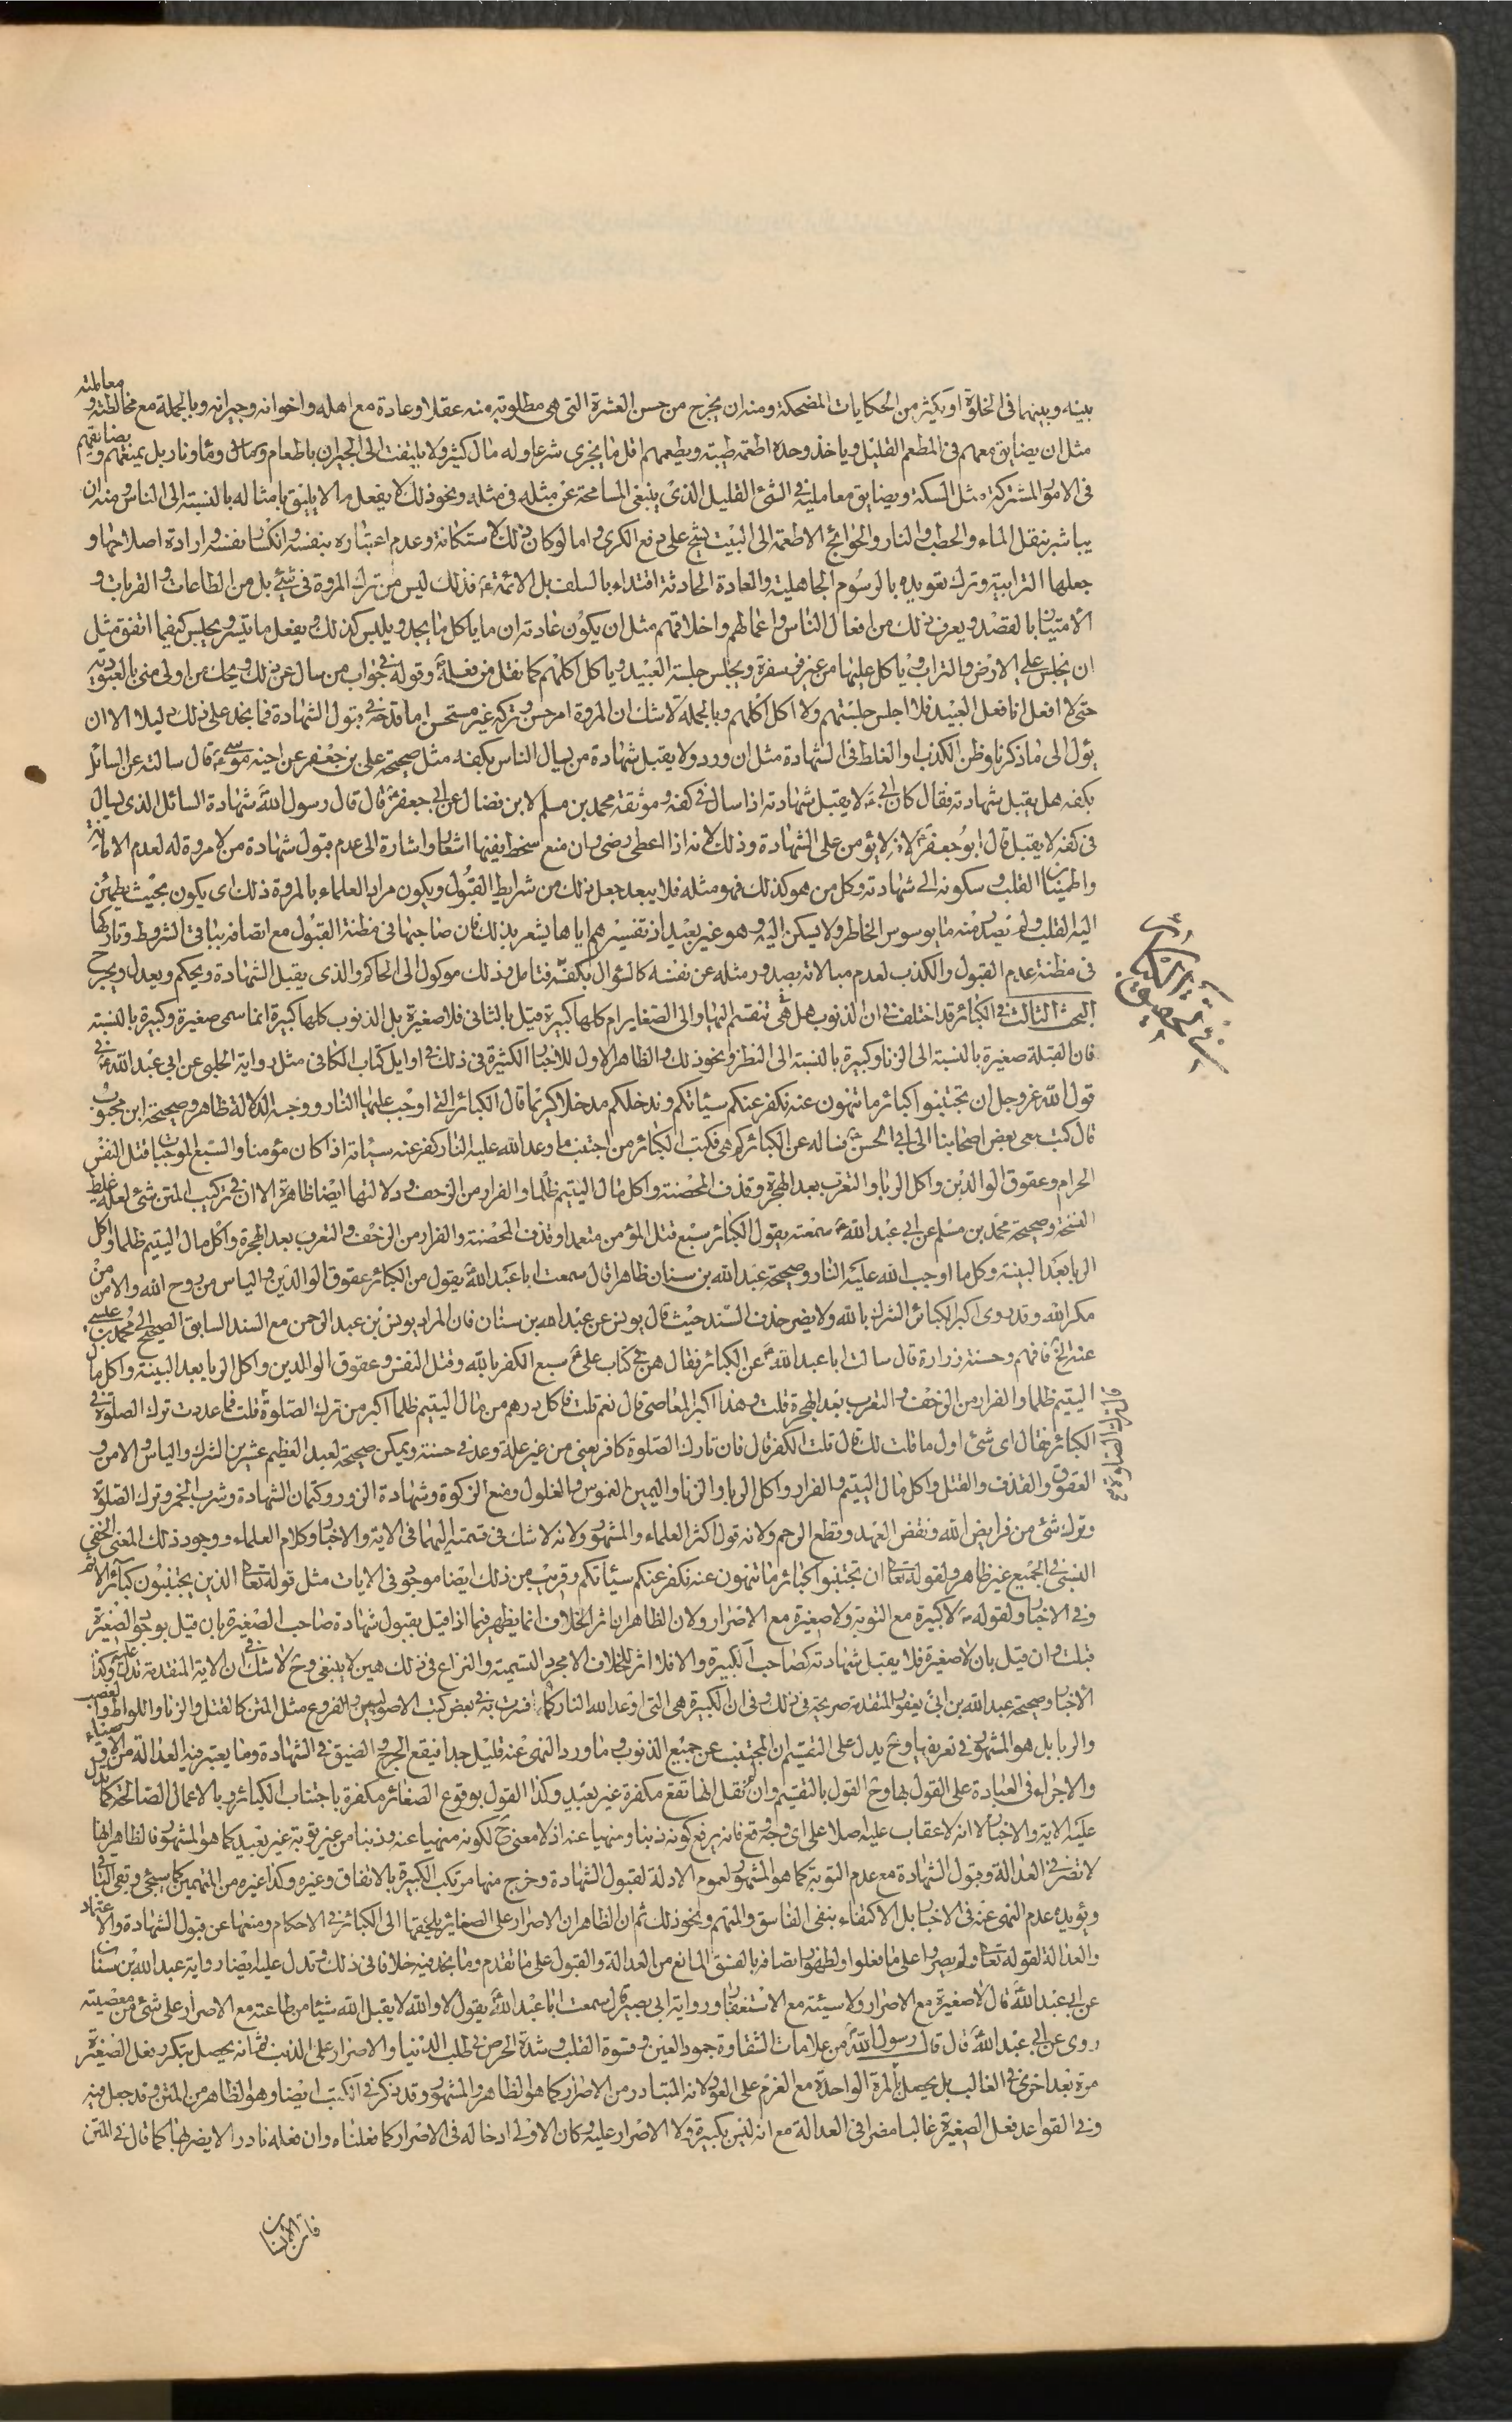 بينه وبينها فى الخلوة او يكثر من الحكايات المضحكة ومنه ان يخرج من حسن العشرة التى هى مطلوبة منه عقلا وعادة مع اهله واخوانه وجيرانه وبالجملة مع مخالطته ومعاملته
مثل ان يضايق معهم فى المطعم القليل وياخذ وحده اطعمة طيبة ويطعمهم اقل ما يجزى شرعا وله مال كثير ولا يلتفت الى الجيران باطعام ومال وماء ونار بل يمنعهم ويضايقهم
فى الامور المشتركة مثل السكة ويضايق معامليه فى الشئ القليل الذى ينبغى المسامحة عن مثله فى مثله ونحو ذلك لا يفعل ما لا يليق بامثاله بالنسبة الى الناس ومنه ان
يباشر بنقل الماء والحطب والنار والحوائج الاطعمة الى البيت يشح على دفع الكرى واما لو كان ذلك لاستكانة وعدم اعتباره بنفسه وانكسار نفسه وارادة اصلاحها و
جعلها الترابية وترك تقويده بالرسوم الجاهلية والعادة الحادثة اقتداء بالسلف بل الائمة ع فذلك ليس من ترك المروة فى شئ بل من الطاعات والقربات و
الامتياز بالقصد ويعرف ذلك من افعال الناس واعمالهم واخلاقهم مثل ان يكون عادته ان ما ياكل ما يجد ويلبس كذلك ويفعل ما تيسر ويجلس كيفما اتفق مثل
ان يجلس على الارض والتراب وياكل عليها من غير سفرة ويجلس جلسة العبيد وياكل اكلهم كما نقل من فعله ع وقوله فى جواب من سال عن ذلك ويحك من اولى منى بالعبودية
حتى لا افعل انا فعل العبيد فلا اجلس جلستهم ولا اكل اكلهم وبالجملة لا شك ان المروة امر حسن وتركه غير مستحسن اما قدحه فى قبول الشهادة فما نجد على ذلك دليلا الا ان
يؤل الى ما ذكرنا وظن الكذب او الغلط فى الشهادة مثل ان ورد ولا يقبل شهادة من يسال الناس بكفه مثل صحيحة على بن جعفر عن اخيه موسى ع قال سالته عن السائل
بكفه هل يقبل شهادته فقال كان ابى ع لا يقبل شهادته اذا سال فى كفه وموثقة محمد بن مسلم لابن فضال عن ابى جعفر ع قال قال رسول الله ص شهادة السائل الذى يسال
فى كفه لا يقبل قال ابو جعفر ع لانه لا يؤمن على الشهادة وذلك لانه اذا اعطى رضى وان منع سخط فيفيها اشعار واشارة الى عدم قبول شهادة من لا مروة له لعدم الامانة
واطمينان القلب وسكونه الى شهادته وكل من هو كذلك فهو مثله فلا يبعد جعل ذلك من شرايط القبول ويكون مراد العلماء بالمروة ذلك اى يكون بحيث يطمئن
اليه القلب ولم يصدر منه ما يوسوس الخاطر ولا يسكن اليه وهو غير بعيد اذ تفسيرهم اياها يشعر بذلك فان صاحبها فى مظنة القبول مع اتصافه بباقى الشروط وتاركها
فى مظنة عدم القبول والكذب لعدم مبالاته بصدور مثله عن نفسه كالسؤال بكفه فتامل وذلك موكول الى الحاكم والذى يقبل الشهادة ويحكم ويعدل ويجرح
البحث الثالث فى الكبائر قد اختلف فى ان الذنوب هل هى تنقسم اليها والى الصغاير ام كلها كبيرة قيل بالثانى فلا صغيرة بل الذنوب كلها كبيرة انما سمى صغيرة وكبيرة بالنسبة
فان القبلة صغيرة بالنسبة الى الزنا وكبيرة بالنسبة الى النظر ونحو ذلك والظاهر الاول للاخبار الكثيرة فى ذلك فى اوايل كتاب الكافى مثل رواية الحلبى عن ابى عبد الله ع فى
قول الله عز وجل ان تجتنبوا كبائر ما تنهون عنه نكفر عنكم سيئاتكم وندخلكم مدخلا كريما قال الكبائر التى اوجب عليها النار ووجه الدلالة ظاهر وصحيحة ابن محبوب
قال كتب معى بعض اصحابنا الى ابى الحسن ع يساله عن الكبائر كم هى فكتب الكبائر من اجتنب ما وعد الله عليه النار كفر عنه سيئاته اذا كان مؤمنا والسبع الموجبات قتل النفس
الحرام وعقوق الوالدين واكل الربا والتعرب بعد الهجرة وقذف المحصنة واكل مال اليتيم ظلما والفرار من الزحف ودلالتها ايضا ظاهرة الا ان فى تركيب المتن شئ لعله غلط
النسخة وصحيحة محمد بن مسلم عن ابى عبد الله ع سمعته يقول الكبائر سبع قتل المؤمن متعمدا وقذف المحصنة والفرار من الزحف والتعرب بعد الهجرة واكل مال اليتيم ظلما واكل
الربا بعد البينة وكل ما اوجب الله عليه النار وصحيحة عبد الله بن سنان ظاهرا قال سمعت ابا عبد الله ع يقول من الكبائر عقوق الوالدين والياس من روح الله والامن من
مكر الله وقد روى اكبر الكبائر الشرك بالله ولا يضر حذف السند حيث قال يونس عن عبد الله بن سنان فان المراد يونس بن عبد الرحمن مع السند السابق الصحيح الى محمد بن عيسى
عنه الخ فافهم وحسنة زرارة قال سالت ابا عبد الله ع عن الكبائر فقال هن فى كتاب على ع سبع الكفر بالله وقتل النفس وعقوق الوالدين واكل الربا بعد البينة واكل مال
اليتيم ظلما والفرار من الزحف والتعرب بعد الهجرة قلت وهذا اكبر المعاصى قال نعم قلت فاكل درهم من مال اليتيم ظلما اكبر من ترك الصلوة قلت فما عددت ترك الصلوة فى
الكبائر فقال اى شئ اول ما قلت لك قال قلت الكفر قال فان تارك الصلوة كافر يعنى من غير علة وعد فى حسنة ويمكن صحيحة لعبد العظيم عشرين الشرك والياس والامن و
العقوق والقذف والقتل واكل مال اليتيم والفرار واكل الربا والزنا واليمين الغموس والغلول ومنع الزكوة وشهادة الزور وكتمان الشهادة وشرب الخمر وترك الصلوة
وترك شئ من فرايض الله ونقض العهد وقطع الرحم ولانه قول اكثر العلماء والمشهور ولانه لا شك فى قسمته اليهما فى الاية والاخبار وكلام العلماء ووجود ذلك المعنى الخفى
النسبى فى الجميع غير ظاهر ولقوله تعالى ان تجتنبوا كبائر ما تنهون عنه نكفر عنكم سيئاتكم وقريب من ذلك ايضا موجود فى الايات مثل قوله تعالى الذين يجتنبون كبائر الاثم
وفى الاخبار ولقوله ع لا كبيرة مع التوبة ولا صغيرة مع الاصرار ولان الظاهر ان اثر الخلاف انما يظهر فيما اذا قيل بقبول شهادة صاحب الصغيرة بان قيل بوجود الصغيرة
قبلت وان قيل بان لا صغيرة فلا يقبل شهادته كصاحب الكبيرة والا فلا اثر للخلاف الا مجرد التسمية والنزاع فى ذلك هين لا ينبغى وح لا شك فى ان الاية المتقدمة تدل عليه وكذا
الاخبار وصحيحة عبد الله بن ابى يعفور المتقدمة صريحة فى ذلك وفى ان الكبيرة هى التى اوعد الله النار كما فسرت به فى بعض كتب الاصوليين والفروع مثل المتن كالقتل والزنا واللواط والغصب
والربا بل هو المشهور فى تعريفها وح يدل على التقسيم ان المجتنب عن جميع الذنوب وما ورد النهى عنه قليل جدا فيقع الحرج والضيق فى الشهادة وما يعتبر فيه العدالة من الاوصياء
والاجراء فى العبادة على القول بها وح القول بالتقسيم وان لم نقل انها تقع مكفرة غير بعيد وكذا القول بوقوع الصغائر مكفرة باجتناب الكبائر وبالاعمال الصالحة كما تدل
عليه الاية والاخبار لا انه لا عقاب عليه اصلا على اى وجه وقع فانه يرفع كونه ذنبا ومنهيا عنه اذ لا معنى ح لكونه منهيا عنه وذنبا من غير توبة غير بعيد كما هو المشهور فالظاهر انها
لا تضر فى العدالة وقبول الشهادة مع عدم التوبة كما هو المشهور لعموم الادلة لقبول الشهادة وخرج منها مرتكب الكبيرة بالاتفاق وغيره وكذا غيره من المتهمين كما سيجئ وبقى الباقى
ويؤيده عدم النهى عنه فى الاخبار بل الاكتفاء بنفى الفاسق والمتهم ونحو ذلك ثم ان الظاهر ان الاصرار على الصغائر يلحقها الى الكبائر فى الاحكام ومنعها عن قبول الشهادة والاعتماد
والعدالة لقوله تعالى ولم يصروا على ما فعلوا ولظهور اتصافه بالفسق المانع من العدالة والقبول على ما تقدم وما نجد فيه خلافا فى ذلك وتدل عليه ايضا رواية عبد الله بن سنان
عن ابى عبد الله ع قال لا صغيرة مع الاصرار ولا سيئة مع الاستغفار ورواية ابى بصير قال سمعت ابا عبد الله ع يقول لا والله لا يقبل الله شيئا من طاعته مع الاصرار على شئ من معصيته
روى عن ابى عبد الله ع قال قال رسول الله ص من علامات الشقاوة جمود العين وقسوة القلب وشدة الحرص فى طلب الدنيا والاصرار على الذنب ثم انه يحصل بتكرر فعل الصغيرة
مرة بعد اخرى فى الغالب بل يحصل بالمرة الواحدة مع العزم على العود لانه المتبادر من الاصرار كما هو الظاهر والمشهور وقد ذكر فى الكتب ايضا وهو الظاهر من المتن وقد جعل فيه
وفى القواعد فعل الصغيرة غالبا مضر فى العدالة مع انه ليس بكبيرة ولا الاصرار عليه وكان الاولى ادخاله فى الاصرار كما فعلناه وان فعله نادرا لا يضر بها كما قال فى المتن
فان الانسان
فى تحقيق الكبائر
او ترك الصلوة قال